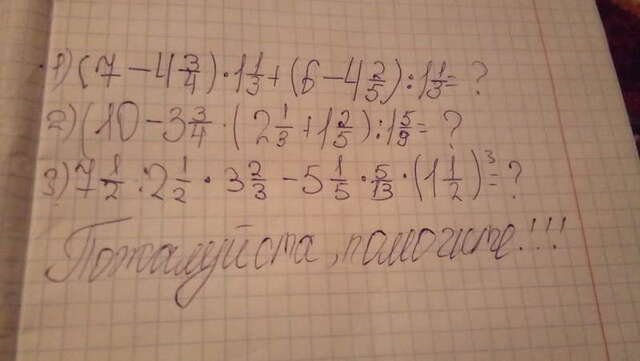 1) (7 - 4 3/4) · 1 1/3 + (6 - 4 2/5) : 1 1/3 = ?
2) (10 - 3 3/4 · (2 1/3 + 1 2/5) : 1 5/9 = ?
3) 7 1/2 : 2 1/2 · 3 2/3 - 5 1/5 · 5/13 · (1 1/2)³ = ?
Пожалуйста, помогите!!!